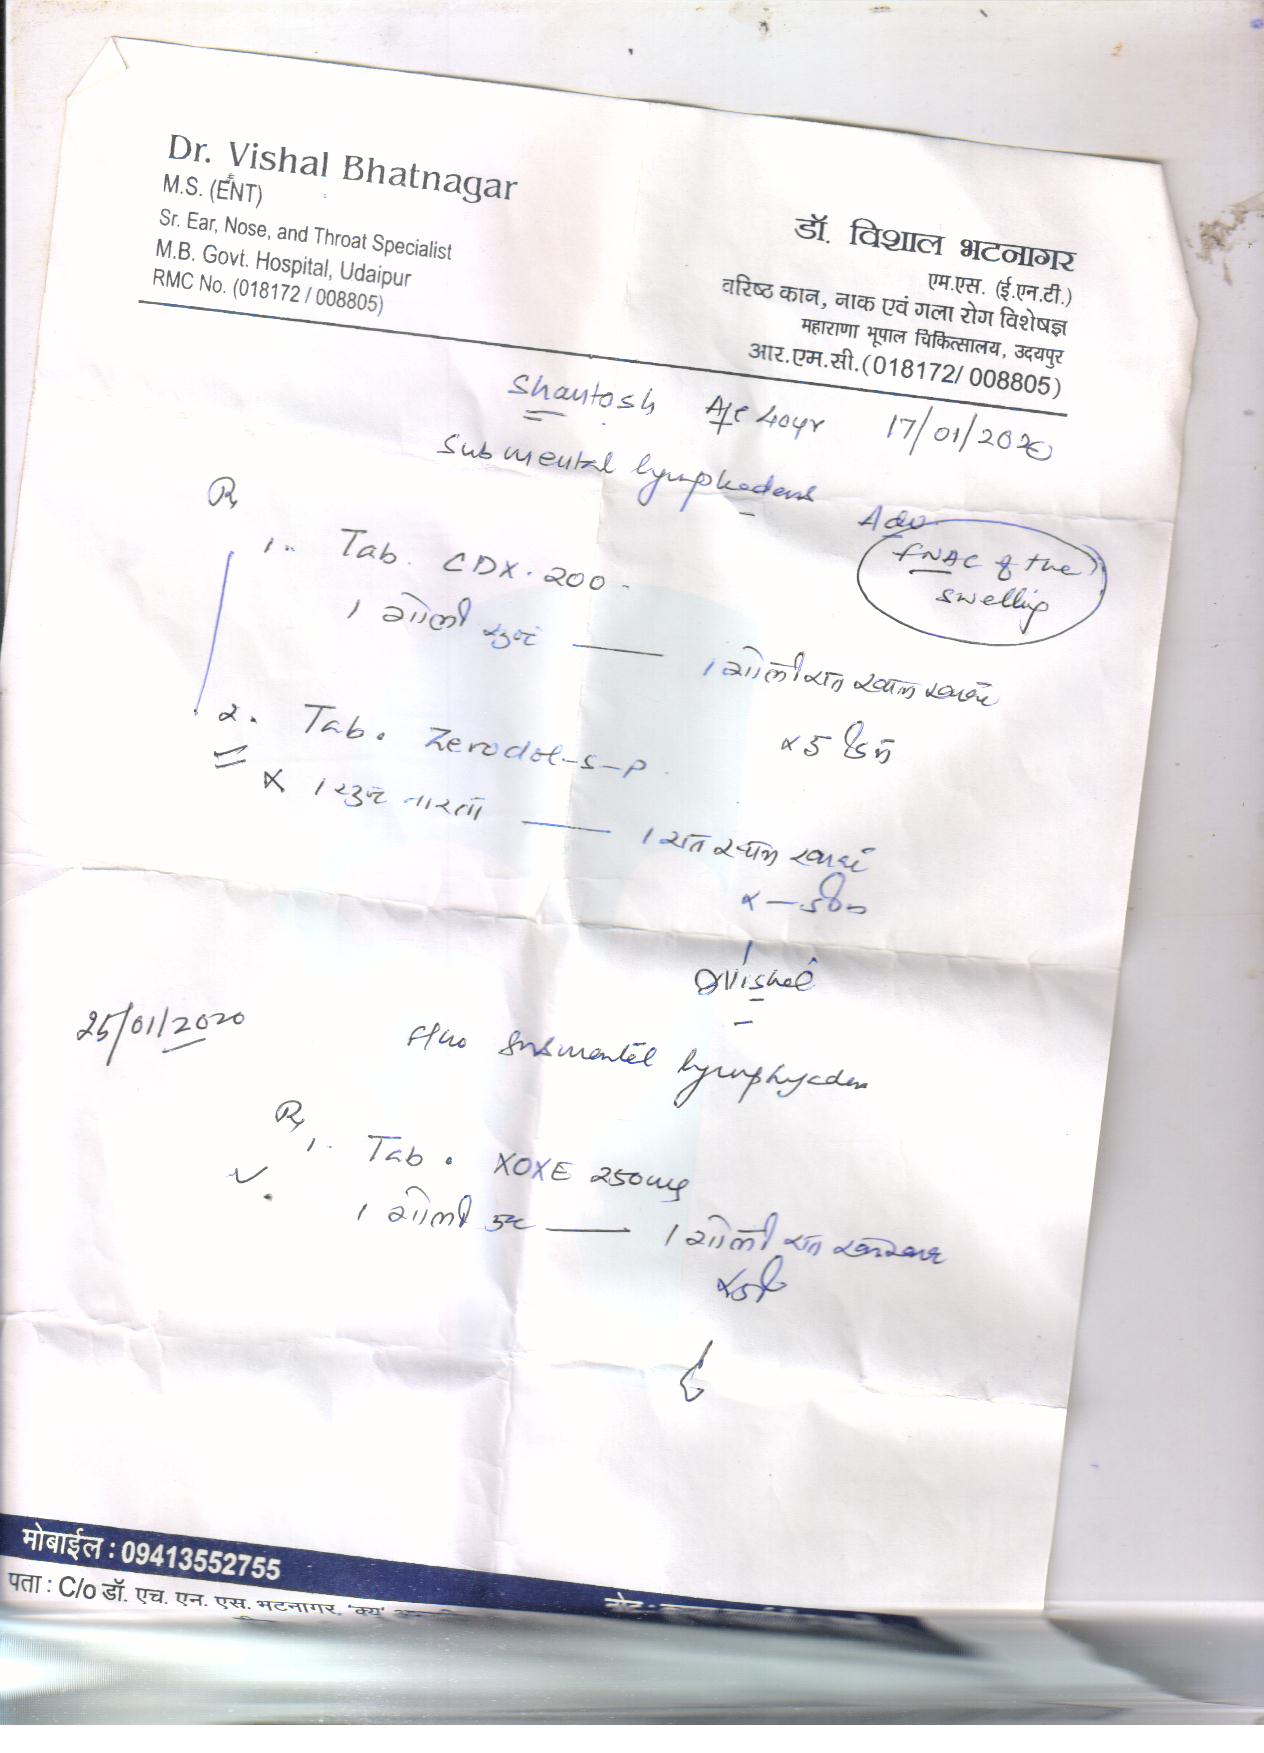 Dr. Vishal Bhatnagar
M.S. (ENT)
Sr. Ear, Nose, and Throat Specialist
M.B. Govt. Hospital, Udaipur
RMC No. (018172 / 008805)
डॉ. विशाल भटनागर
एम.एस. (ई.एन.टी.)
वरिष्ठ कान, नाक एवं गला रोग विशेषज्ञ
महाराणा भूपाल चिकित्सालय, उदयपुर
आर.एम.सी.(018172/ 008805)
Shantosh 40yr 17/01/2020
Submental lymphadens
Adv.
FNAC of the
swelling
R
1. Tab. CDX. 200.
1 गोली सुबह — 1 गोली रात खाना खाकर
x 5 दिन
2. Tab. Zerodol-S-P
1 सुबह नास्ता — 1 रात खाना
x — 5 दिन
Vishal
25/01/2020 submental lymphaden
R
1. Tab. XOXE 250mg
1 गोली — 1 गोली रात
मोबाईल : 09413552755
पता : C/o डॉ. एच. एन. एस. भटनागर, 'क्यू'
नोट :